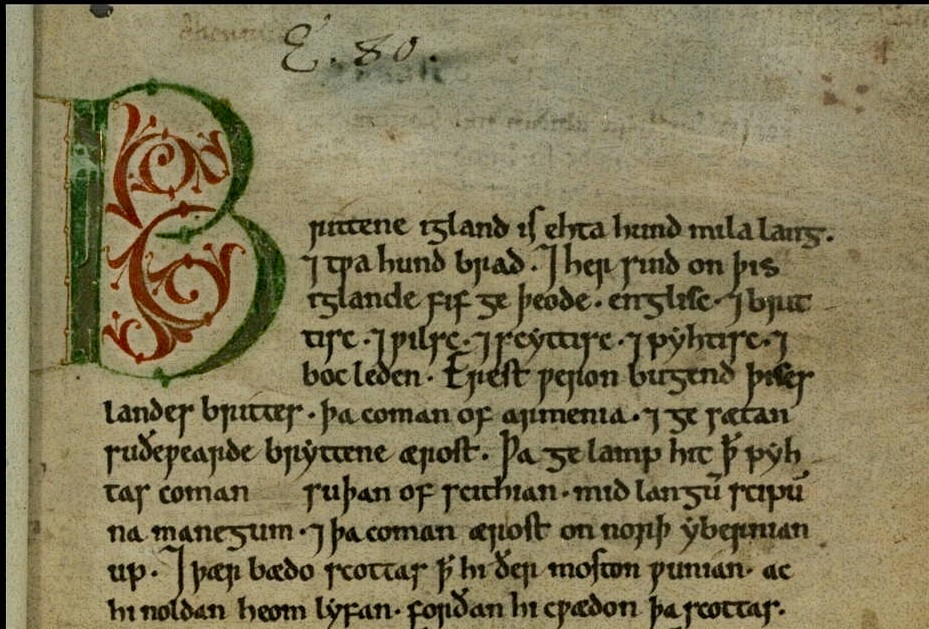 E. 80.
Brittene igland is ehta hund mila lang.
⁊ tƿa hund brad. ⁊ her sind on þis
iglande fif ge þeode. englisc. ⁊ brit
tisc. ⁊ ƿilsc. ⁊ scyttisc. ⁊ pyhtisc. ⁊
boc leden. Erest ƿeron bugend þises
landes brittes. þa coman of armenia. ⁊ ge sætan
suðeƿearde bryttene ærost. Þa ge lamp hit þ̄ pyh
tas coman suþan of scithian. mid langū scipū
na manegum. ⁊ þa coman ærost on norþ ybernian
up. ⁊ þær bædo scottas þ̄ hi ðer moston ƿunian. ac
hi noldan heom lyfan. forðan hi cƿædon þa scottas.